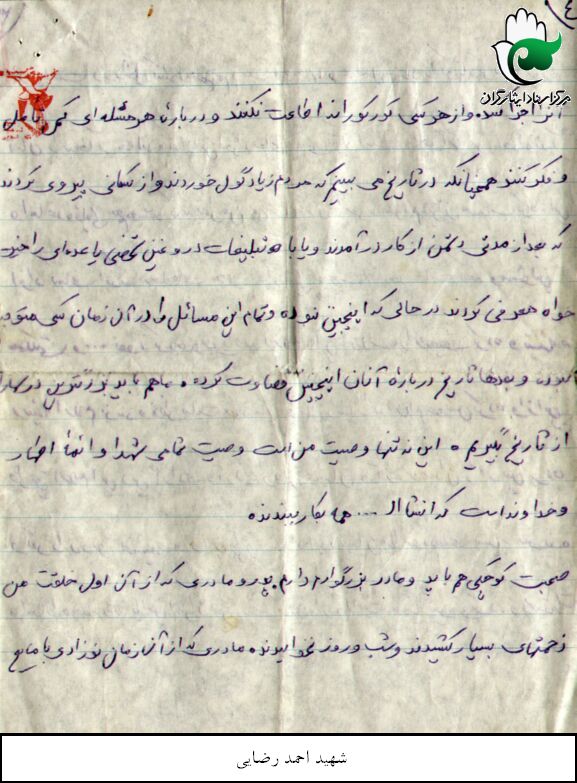 ٤
مرکز اسناد ایثارگران
آنرا اجرا کنند. و از هر کسی کورکورانه اطاعت نکنند و درباره هر مسئله‌ای کمی تأمل
و فکر کنند همچنانکه در تاریخ می بینیم که مردم زیاد گول خوردند و از کسانی پیروی کردند
که بعد از مدتی دشمن از کار درآمدند و یا با تبلیغات دروغین شخصی یا عده‌ای را خیر
خواه معرفی کردند در حالی که اینچنین نبوده و تمام این مسائل را در آن زمان کسی متوجه
نبوده و بعدها تاریخ درباره آنان اینچنین قضاوت کرده. ما هم باید بزرگترین درسها را
از تاریخ بگیریم. این نه تنها وصیت من است وصیت تمامی شهدا و ائمه اطهار
و خداوند است که انشاا... همه بکار ببندند.
صحبت کوچکی هم با پدر و مادر بزرگوارم دارم. پدر و مادری که از آن اول خلقت من
زحمتهای بسیار کشیدند و شب و روز نخوابیدند. مادری که از آن زمان نوزادی با
شهید احمد رضایی